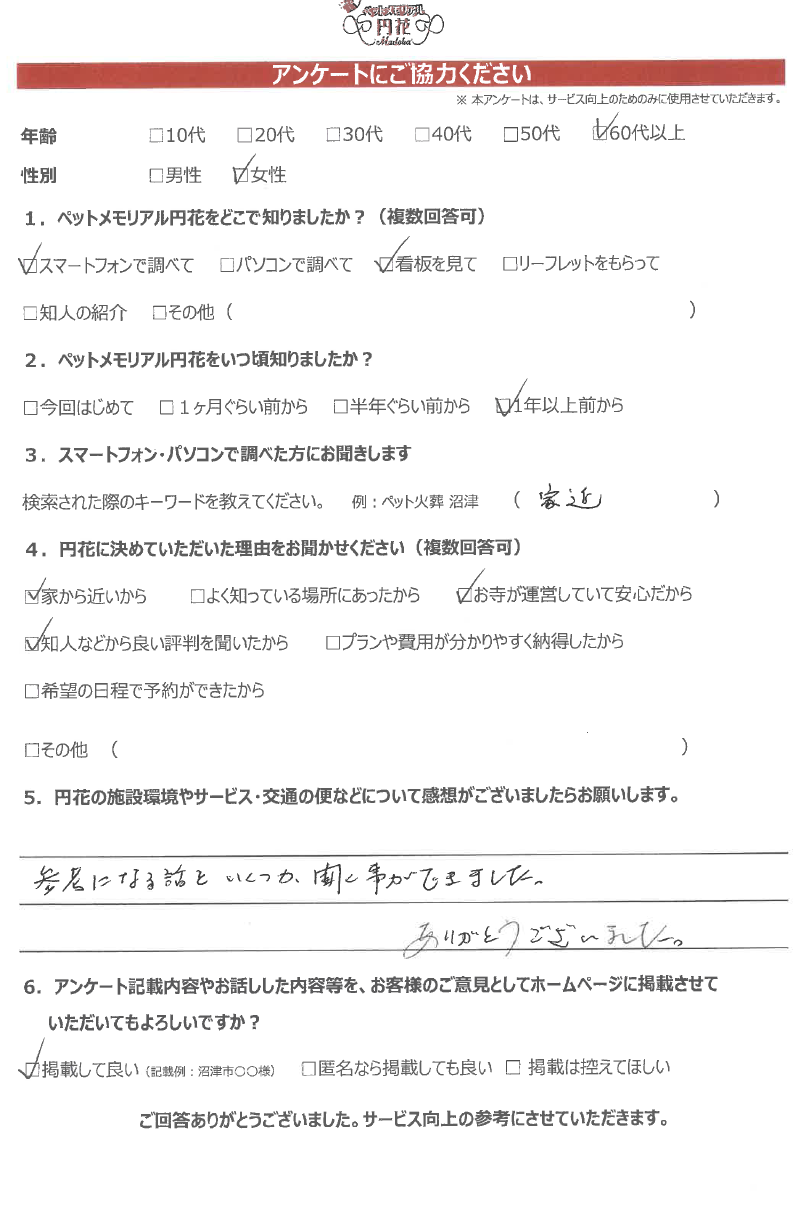 ペットメモリアル
円花
Madoka
アンケートにご協力ください
※ 本アンケートは、サービス向上のためのみに使用させていただきます。
年齢 □10代 □20代 □30代 □40代 □50代 ☑60代以上
性別 □男性 ☑女性
1．ペットメモリアル円花をどこで知りましたか？（複数回答可）
☑スマートフォンで調べて □パソコンで調べて ☑看板を見て □リーフレットをもらって
□知人の紹介 □その他（ ）
2．ペットメモリアル円花をいつ頃知りましたか？
□今回はじめて □1ヶ月ぐらい前から □半年ぐらい前から ☑1年以上前から
3．スマートフォン・パソコンで調べた方にお聞きします
検索された際のキーワードを教えてください。 例：ペット火葬 沼津 （ 家近 ）
4．円花に決めていただいた理由をお聞かせください（複数回答可）
☑家から近いから □よく知っている場所にあったから ☑お寺が運営していて安心だから
☑知人などから良い評判を聞いたから □プランや費用が分かりやすく納得したから
□希望の日程で予約ができたから
□その他 （ ）
5．円花の施設環境やサービス・交通の便などについて感想がございましたらお願いします。
参考になる話を いくつか、聞く事ができました。
ありがとうございました。
6．アンケート記載内容やお話しした内容等を、お客様のご意見としてホームページに掲載させて
いただいてもよろしいですか？
☑掲載して良い（記載例：沼津市〇〇様） □匿名なら掲載しても良い □ 掲載は控えてほしい
ご回答ありがとうございました。サービス向上の参考にさせていただきます。